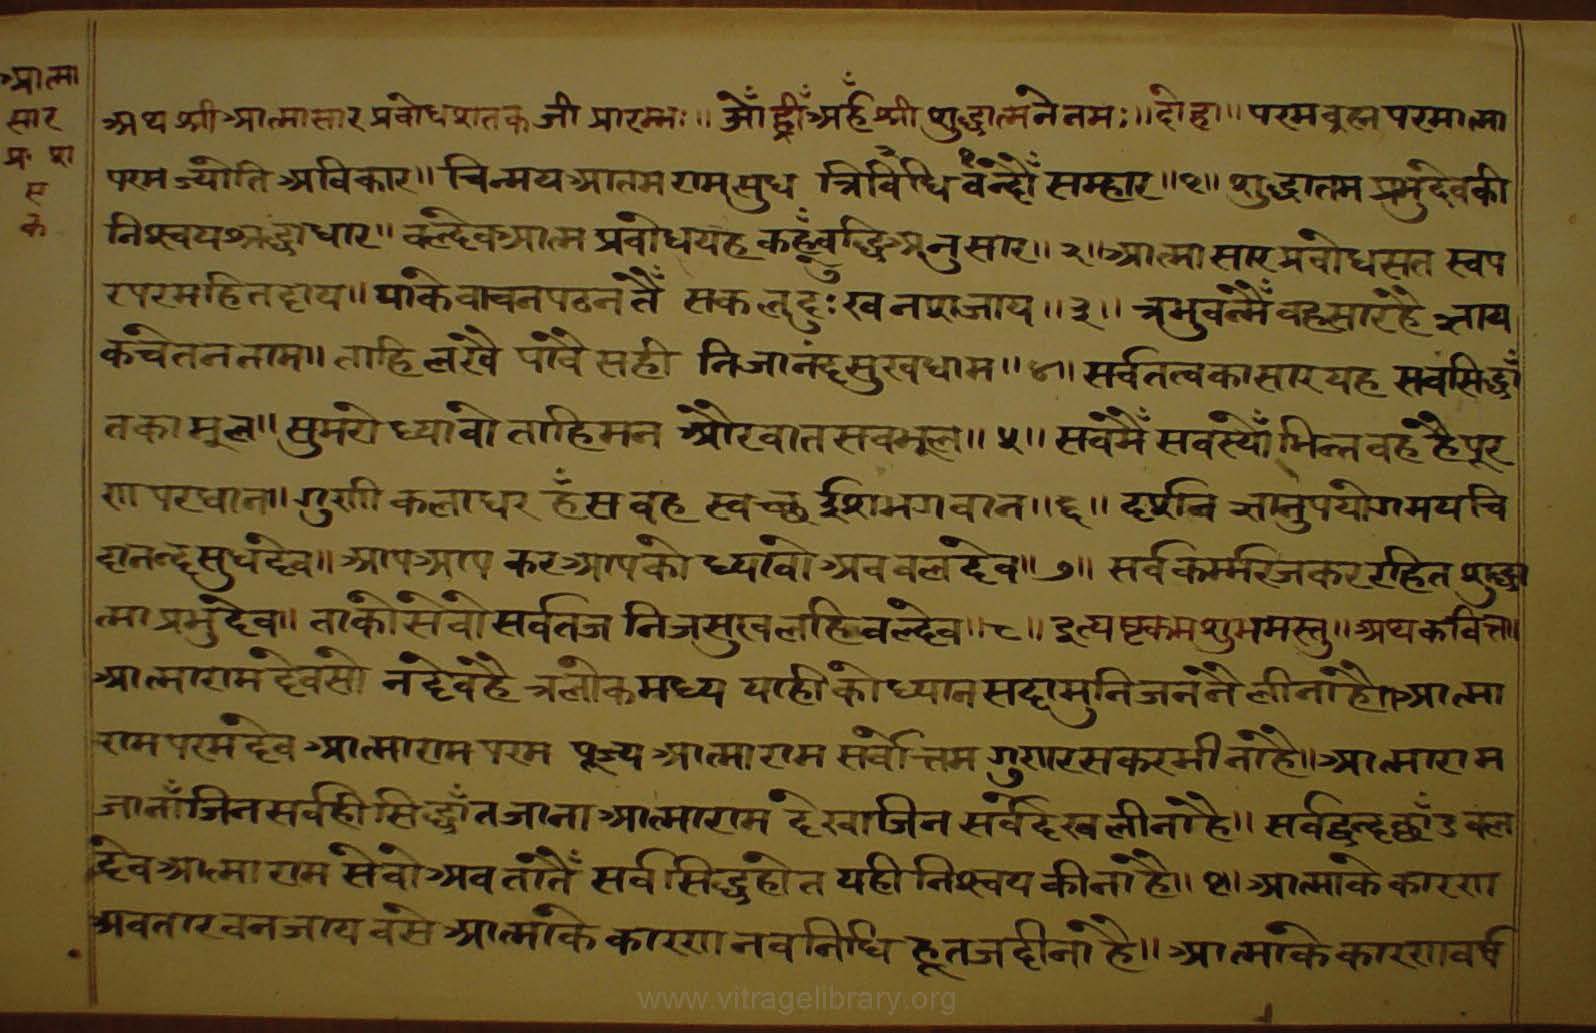 आत्मा
सार
प्र· श
त
क
अथ श्री आत्मासार प्रबोध शतक जी प्रारम्भः॥ ओँ ह्रीँ अर्हँ श्री शुद्धात्मने नमः॥ दोहा॥ परम ब्रह्म परमात्मा
परम ज्योति अविकार॥ चिन्मय आतम राम सुध त्रिविधि वंन्दौँ सम्हार॥१॥ शुद्धातम प्रभु देव की
निश्चय श्रद्धा धार॥ वल्देव आत्म प्रवोध यह कहूँ वुद्धि अनुसार॥२॥ आत्मा सार प्रवोध सत स्वप
र परम हित दाय॥ याके वाचन पठन तैँ सकल दुःख नश जाय॥३॥ त्रभुवन मैँ वह सार है ज्ञाय
क चेतन नाम॥ ताहि लखै पावै सही निजानंद सुखधाम॥४॥ सर्व तत्व का सार यह सर्व सिद्धाँ
त का मूल॥ सुमरो ध्यावो ताहि मन और वात सव भूल॥५॥ सव मैँ सव स्योँ भिन्न वह है पूर
ण परधान॥ गुणी कलाधर हँस वह स्वच्छ ईश भगवान॥६॥ दर्शन ज्ञानुपयोगमय चि
दानन्द सुध देव॥ आप आप कर आपको ध्यावो अव वलदेव॥७॥ सर्व कर्म्म रज कर रहित शुद्धा
त्मा प्रभु देव॥ ताको सेवो सर्व तज निज सुख लहि वल्देव॥८॥ इत्यष्टकम शुभमस्तु॥ अथ कवित्त॥
आत्माराम देव सो न देव है त्रलोक मध्य याही को ध्यान सदा मुनि जनन्नै लीना है॥ आत्मा
राम परम देव आत्माराम परम पूज्य आत्माराम सर्वोत्तम गुण रस कर भीना है॥ आत्माराम
जानाँ जिन सर्व ही सिद्धाँत जाना आत्माराम देखा जिन सर्व देख लीना है॥ सर्व द्वन्द छाँड वल
देव आत्माराम सेवो अव तातैँ सर्व सिद्ध होत यही निश्चय कीना है॥१॥ आत्मा के कारण
अवतार वन जाय वसे आत्मा के कारण नव निधि हू तज दीना है॥ आत्मा के कारण वर्ष
www.vitragelibrary.org